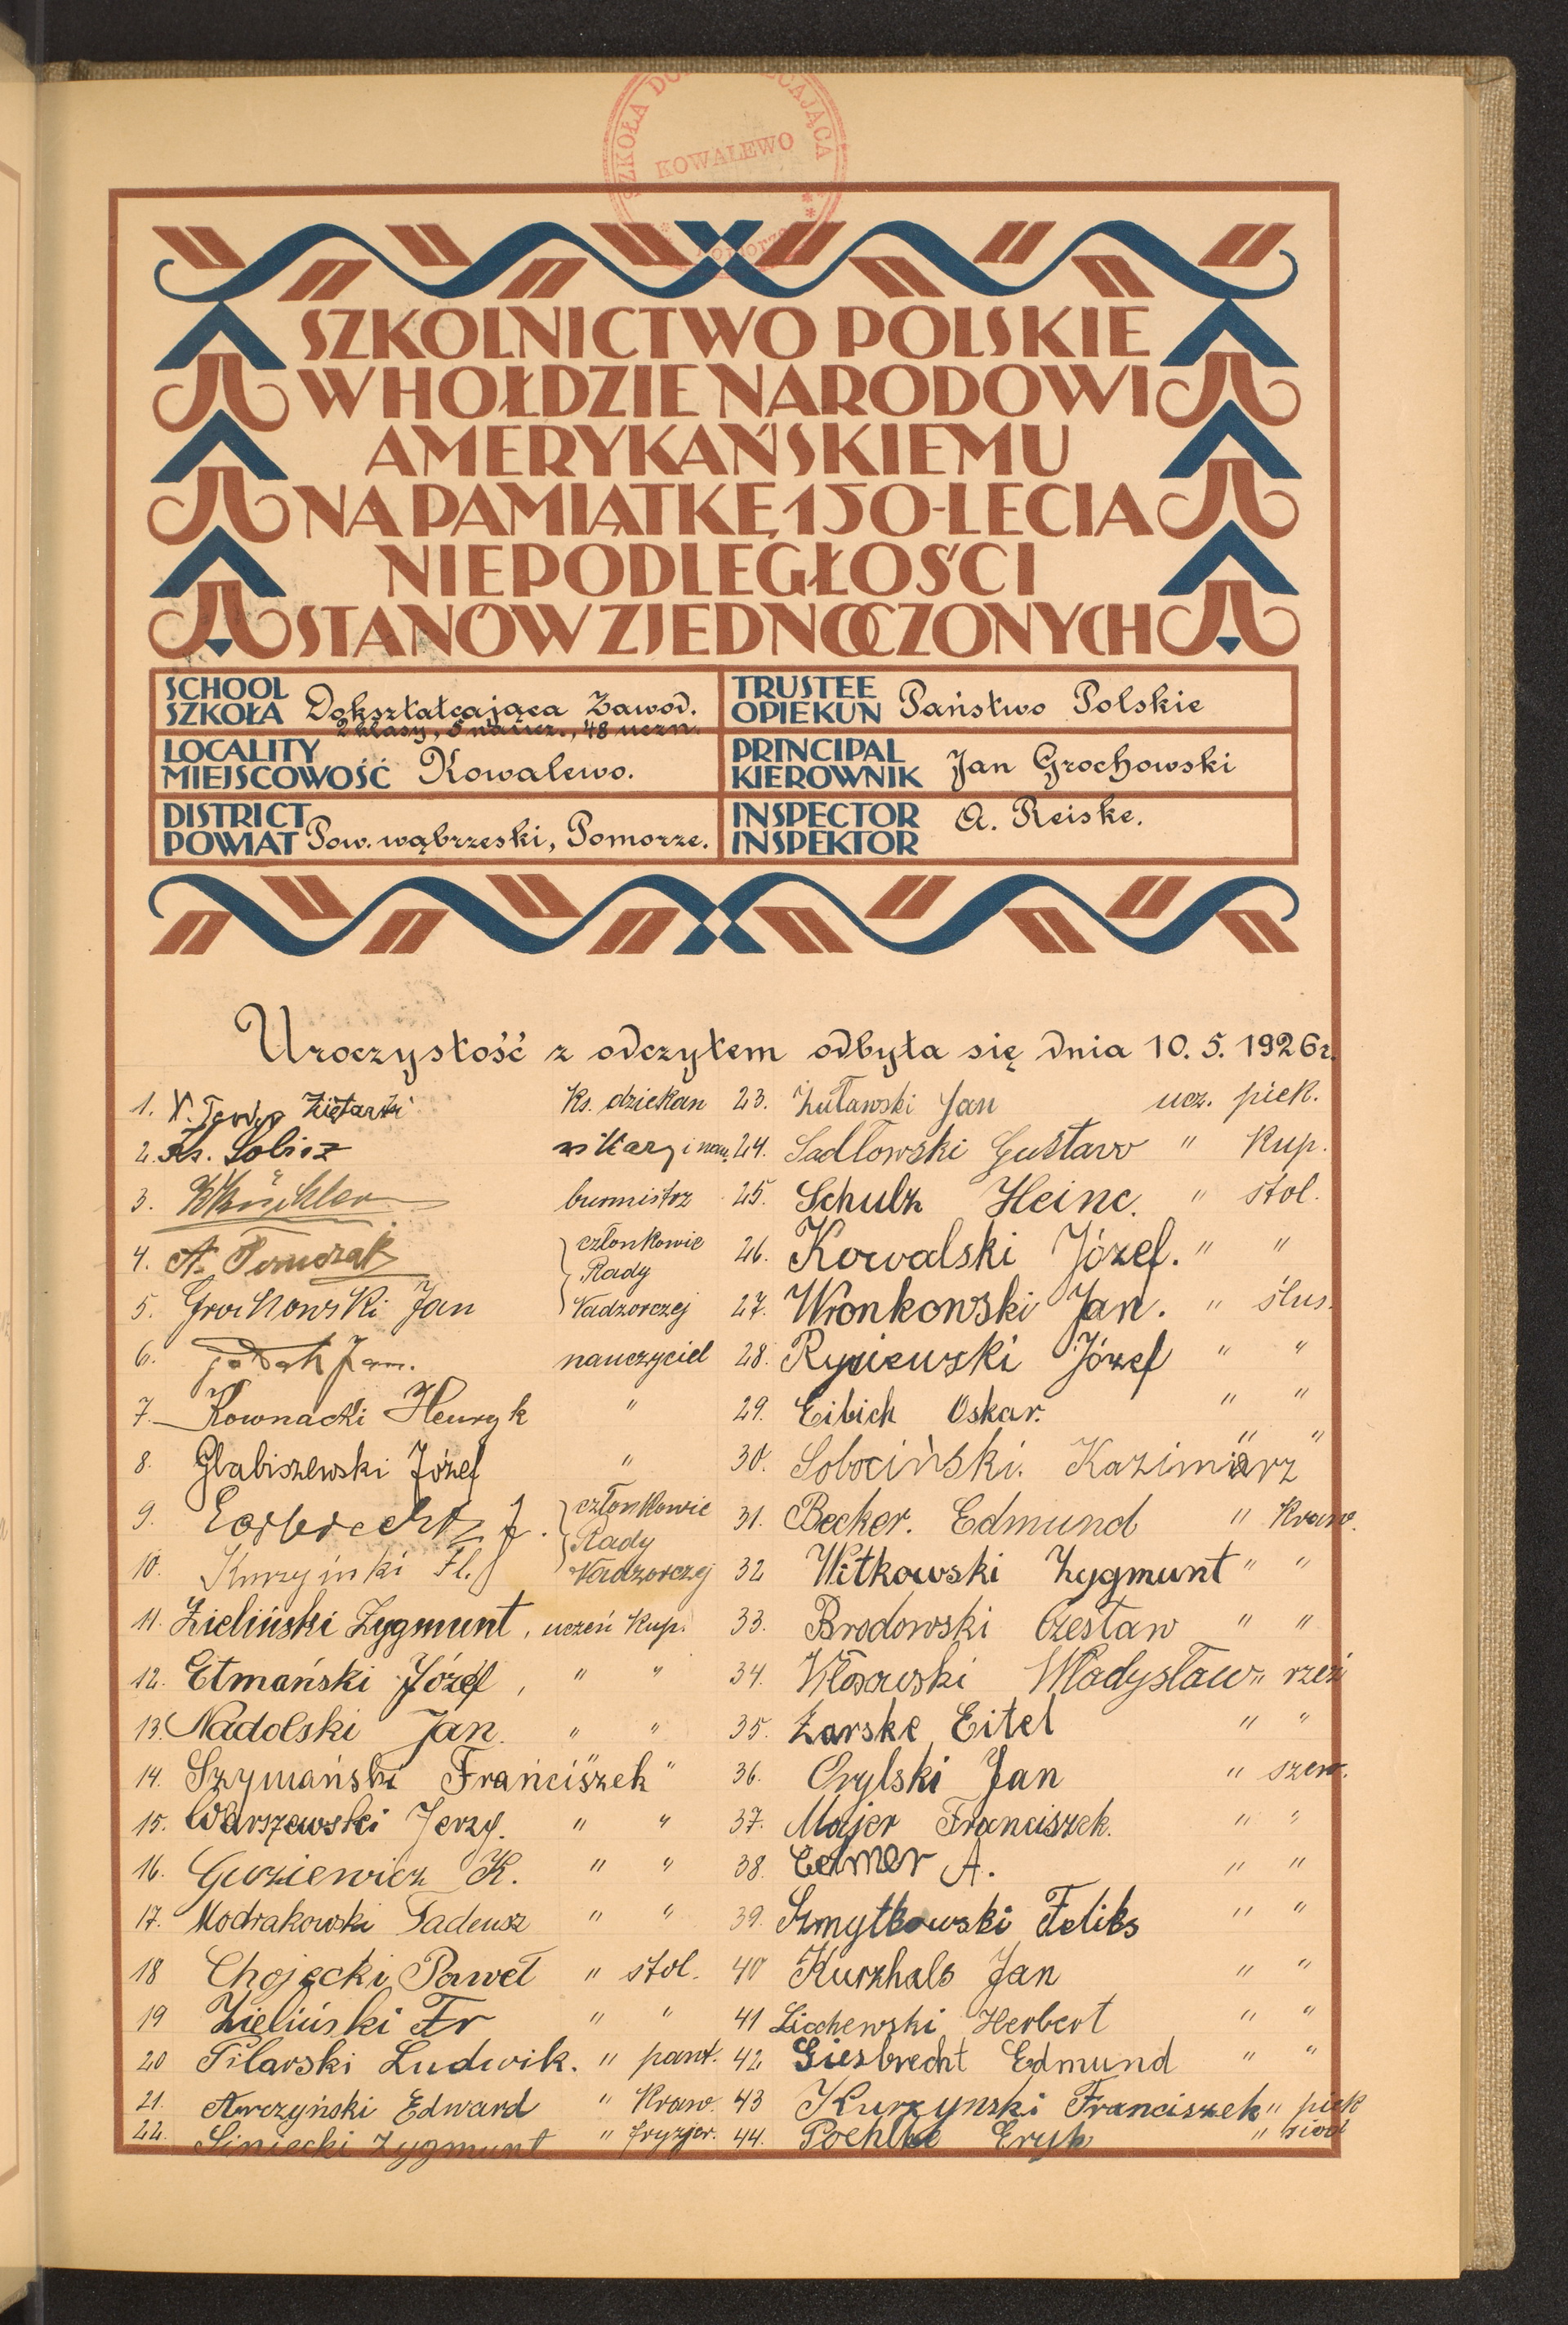 SZKOŁA DO CAJĄCA
KOWALEWO
SZKOLNICTWO POLSKIE
W HOŁDZIE NARODOWI
AMERYKAŃSKIEMU
NA PAMIĄTKĘ 150-LECIA
NIEPODLEGŁOŚCI
STANÓW ZJEDNOCZONYCH
SCHOOL
SZKOŁA Dokształcająca Zawod.
2 klasy, 5 naucz., 48 uczn.
TRUSTEE
OPIEKUN Państwo Polskie
LOCALITY
MIEJSCOWOŚĆ Kowalewo.
PRINCIPAL
KIEROWNIK Jan Grochowski
DISTRICT
POWIAT Pow. wąbrzeski, Pomorze.
INSPECTOR
INSPEKTOR A. Reiske.
Uroczystość z odczytem odbyła się dnia 10. 5. 1926 r.
1. X. Ziętarski ks. dziekan
2. Ks. Sobisz wikary i nau.
3. burmistrz
4. A. członkowie
Rady
5. Grochowski Jan Nadzorczej
6. Jan. nauczyciel
7. Kownacki Henryk "
8. Glabiszewski Józef "
9. członkowie
Rady
10. Kurzyński Fl. Nadzorczej
11. Zieliński Zygmunt, uczeń kup.
12. Etmański Józef, " "
13. Nadolski Jan. " "
14. Szymański Franciszek " "
15. Warszewski Jerzy. " "
16. Guziewicz K. " "
17. Modrakowski Tadeusz " "
18 Chojęcki Paweł " stol.
19 Zieliński Fr " "
20 Pilarski Ludwik. " pant.
21. Edward " Kraw.
22. Siniecki Zygmunt " fryzjer.
23. Żuławski Jan ucz. piek.
24. Sadłowski Gustaw " kup.
25. Schulz Heinc. " stol.
26. Kowalski Józef. " "
27. Wronkowski Jan. " ślus.
28. Józef " "
29. Eibich Oskar. " "
30. Sobociński. Kazimierz " "
31. Becker. Edmund " Kraw.
32 Witkowski Zygmunt " "
33. Brodowski Czesław " "
34. Władysław " rzeź
35. Zarske Eitel " "
36. Crylski Jan " szew.
37. Majer Franciszek. " "
38. A. " "
39. Szmytkowski Feliks " "
40 Kurzhals Jan " "
41 Lischewski Herbert " "
42 Giesbrecht Edmund " "
43 Kurzynski Franciszek " piek
44. Poehlke Eryk " siod